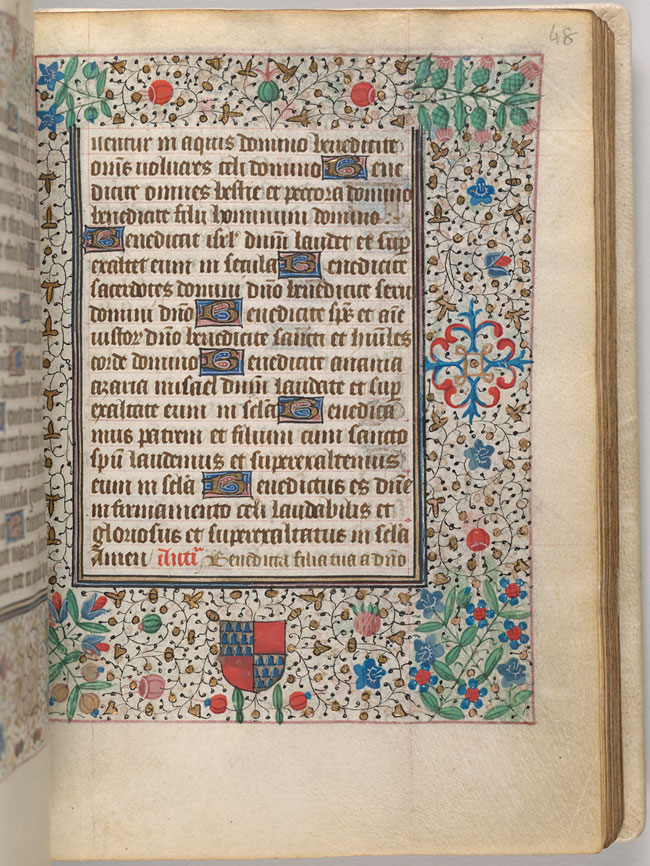 48
uentur in aquis domino benedicite
om̄s uolucres celi domino Bene
dicite omnes bestie et peccora domino
benedicite filij hominum domino
Benedicat isrl̄ dn̄m laudet et sup
exaltet eum in secula Benedicite
sacerdotes domini dn̄o benedicite serui
domini dn̄o Benedicite sp̄s et aīe
iustor dn̄o benedicite sancti et hūiles
corde domino Benedicite anania
azaria misael dn̄m laudate et sup
exaltate eum in sclā Benedica
mus patrem et filium cum sancto
spū laudemus et superexaltemus
eum in sclā Benedictus es dn̄e
in firmamento celi laudabilis et
gloriosus et superexaltatus in sclā
Amen Benedicta filia tua a dn̄o